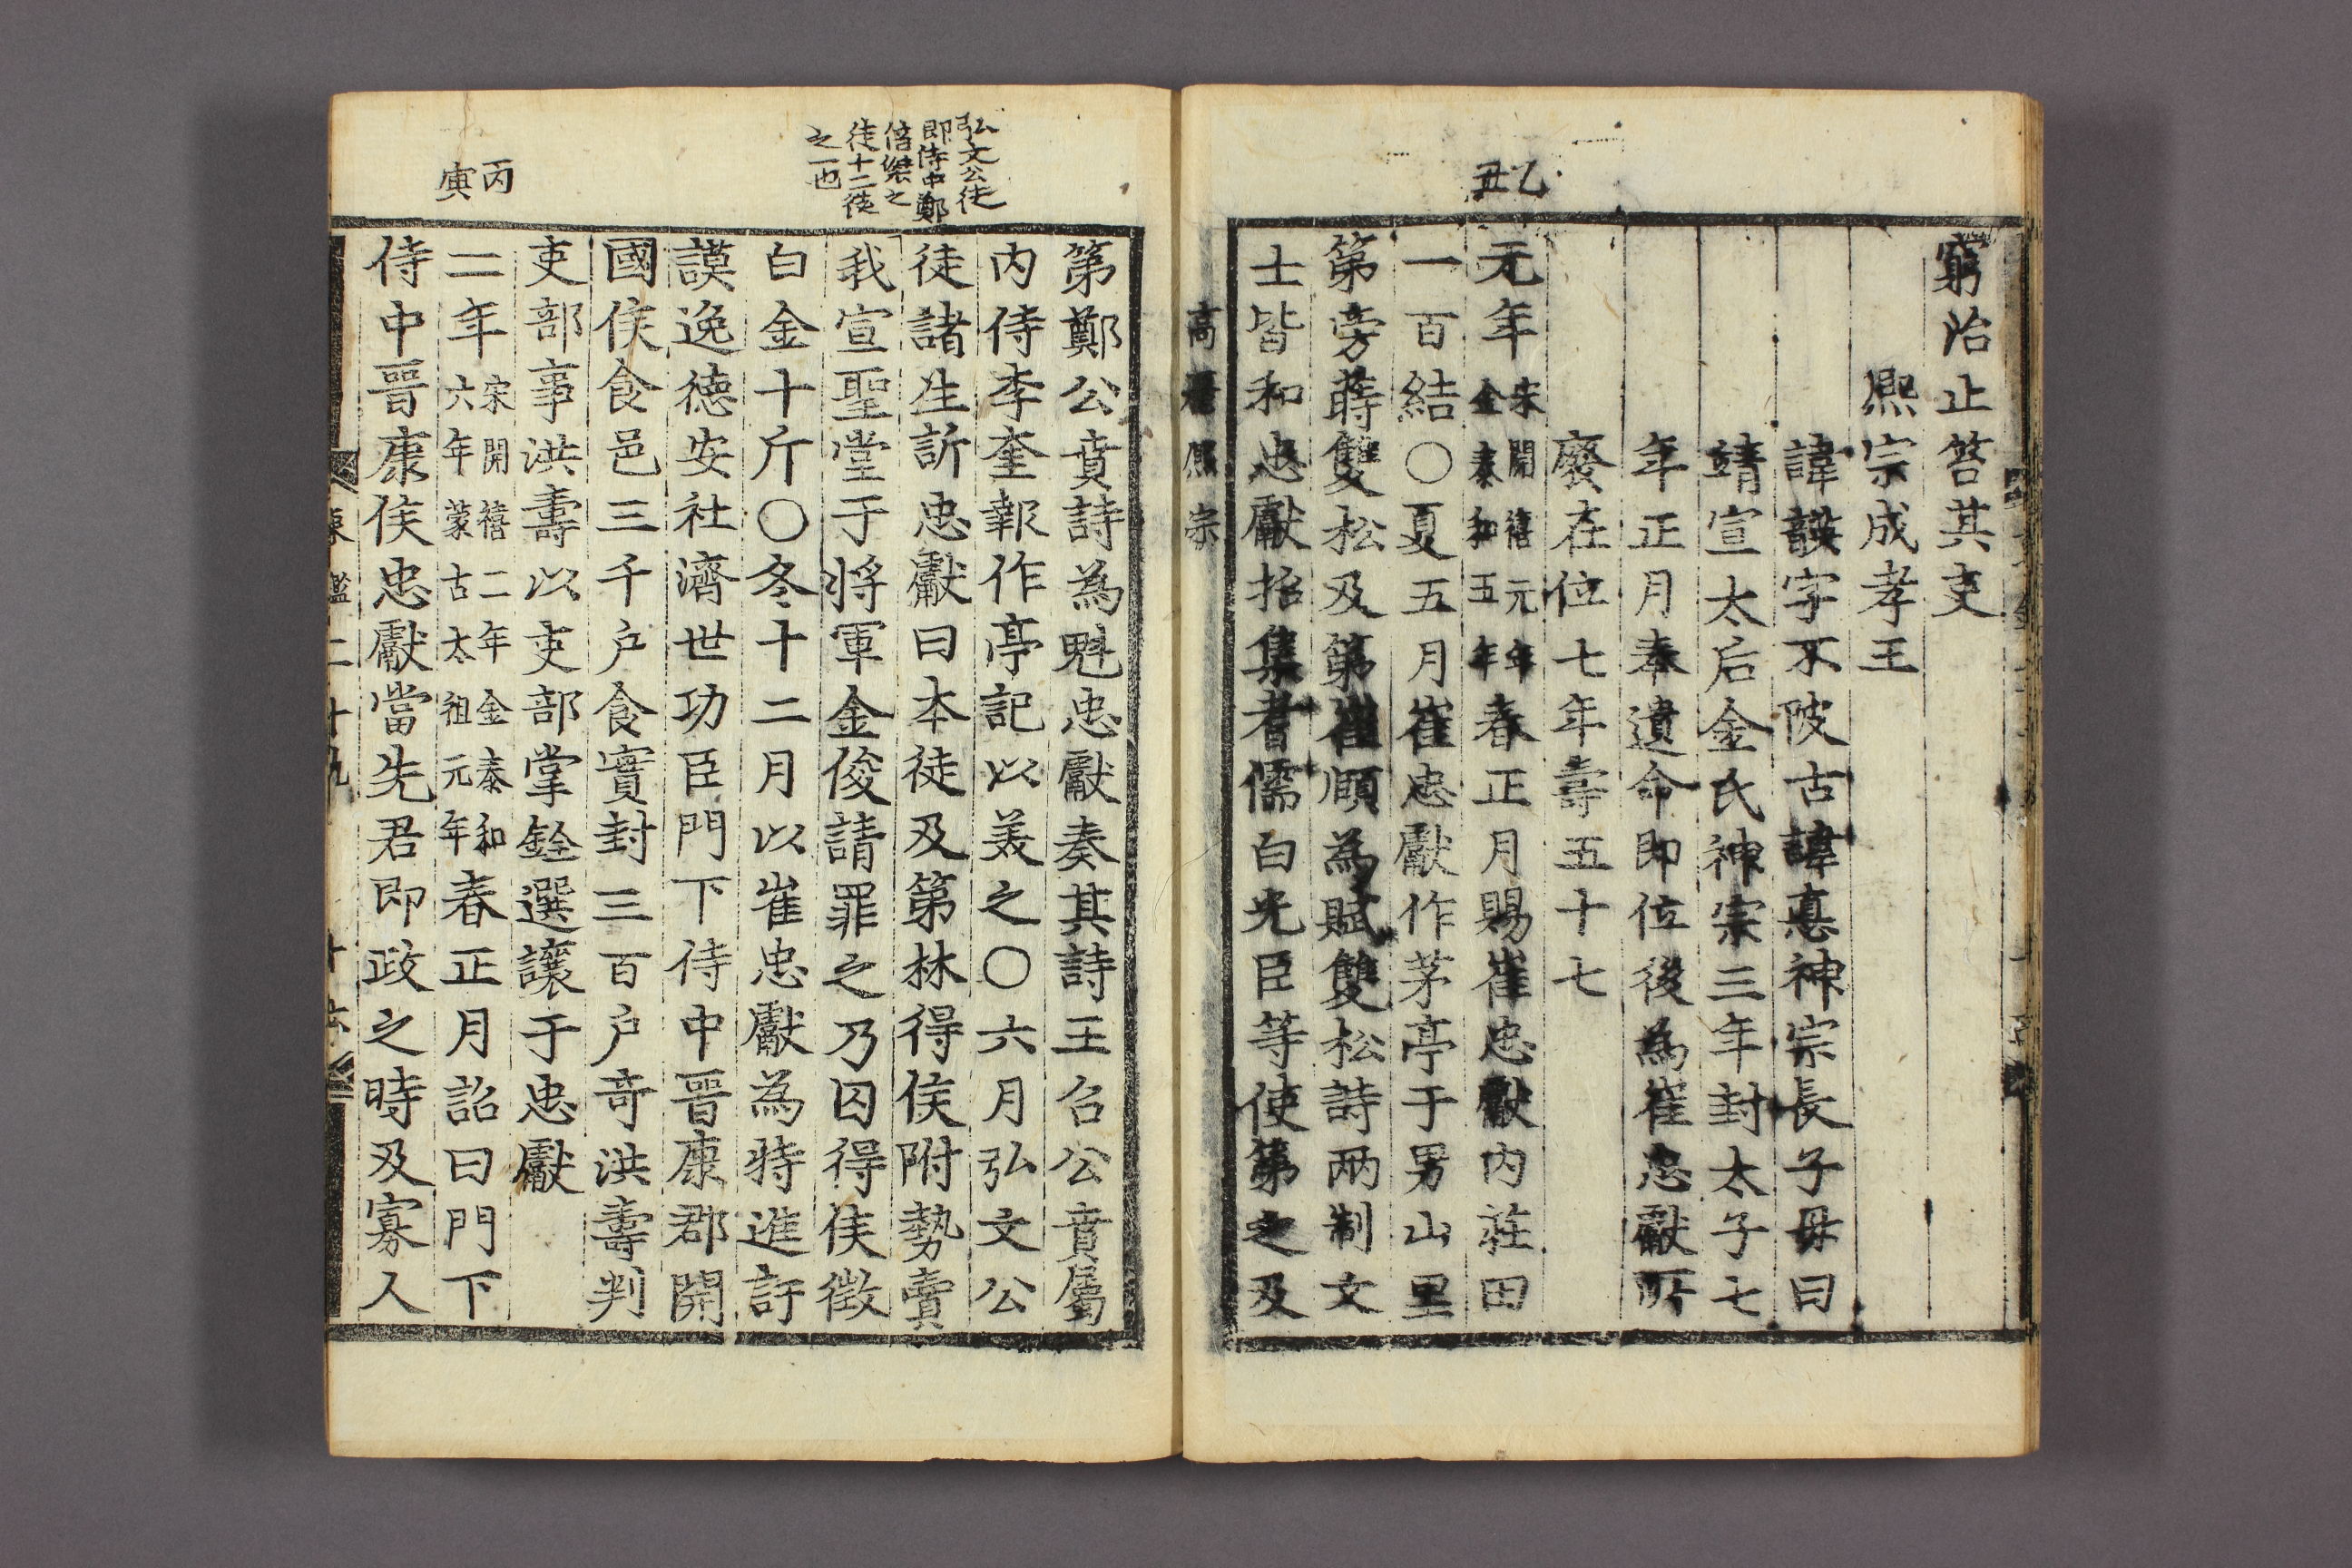 乙丑
窮治止笞其吏
熈宗成孝王
諱韺字不陂古諱悳神宗長子母曰
靖宣太后金氏神宗三年封太子七
年正月奉遺命即位後為崔忠獻所
廢在位七年壽五十七
元年宋開禧元年金泰和五年春正月賜崔忠獻內莊田
一百結〇夏五月崔忠獻作茅亭于男山里
第旁蒔雙松及第崔頤為賦雙松詩兩制文
士皆和忠獻招集耆儒白光臣等使第之及
高麗熈宗
弘文公徒
即侍中鄭
倍傑之
徒十二徒
之一也
丙寅
第鄭公賁詩為魁忠獻奏其詩王召公賁屬
內侍李奎報作亭記以美之〇六月弘文公
徒諸生訴忠獻曰本徒及第林得侯附勢賣
我宣聖堂于将軍金俊請罪之乃囚得侯徵
白金十斤〇冬十二月以崔忠獻為特進訏
謨逸德安社濟世功臣門下侍中晋康郡開
國侯食邑三千户食實封三百户奇洪壽判
吏部事洪壽以吏部掌銓選讓于忠獻
二年宋開禧二年金泰和六年蒙古太祖元年春正月詔曰門下
侍中晋康侯忠獻當先君即政之時及寡人
東鑑二十九 十六